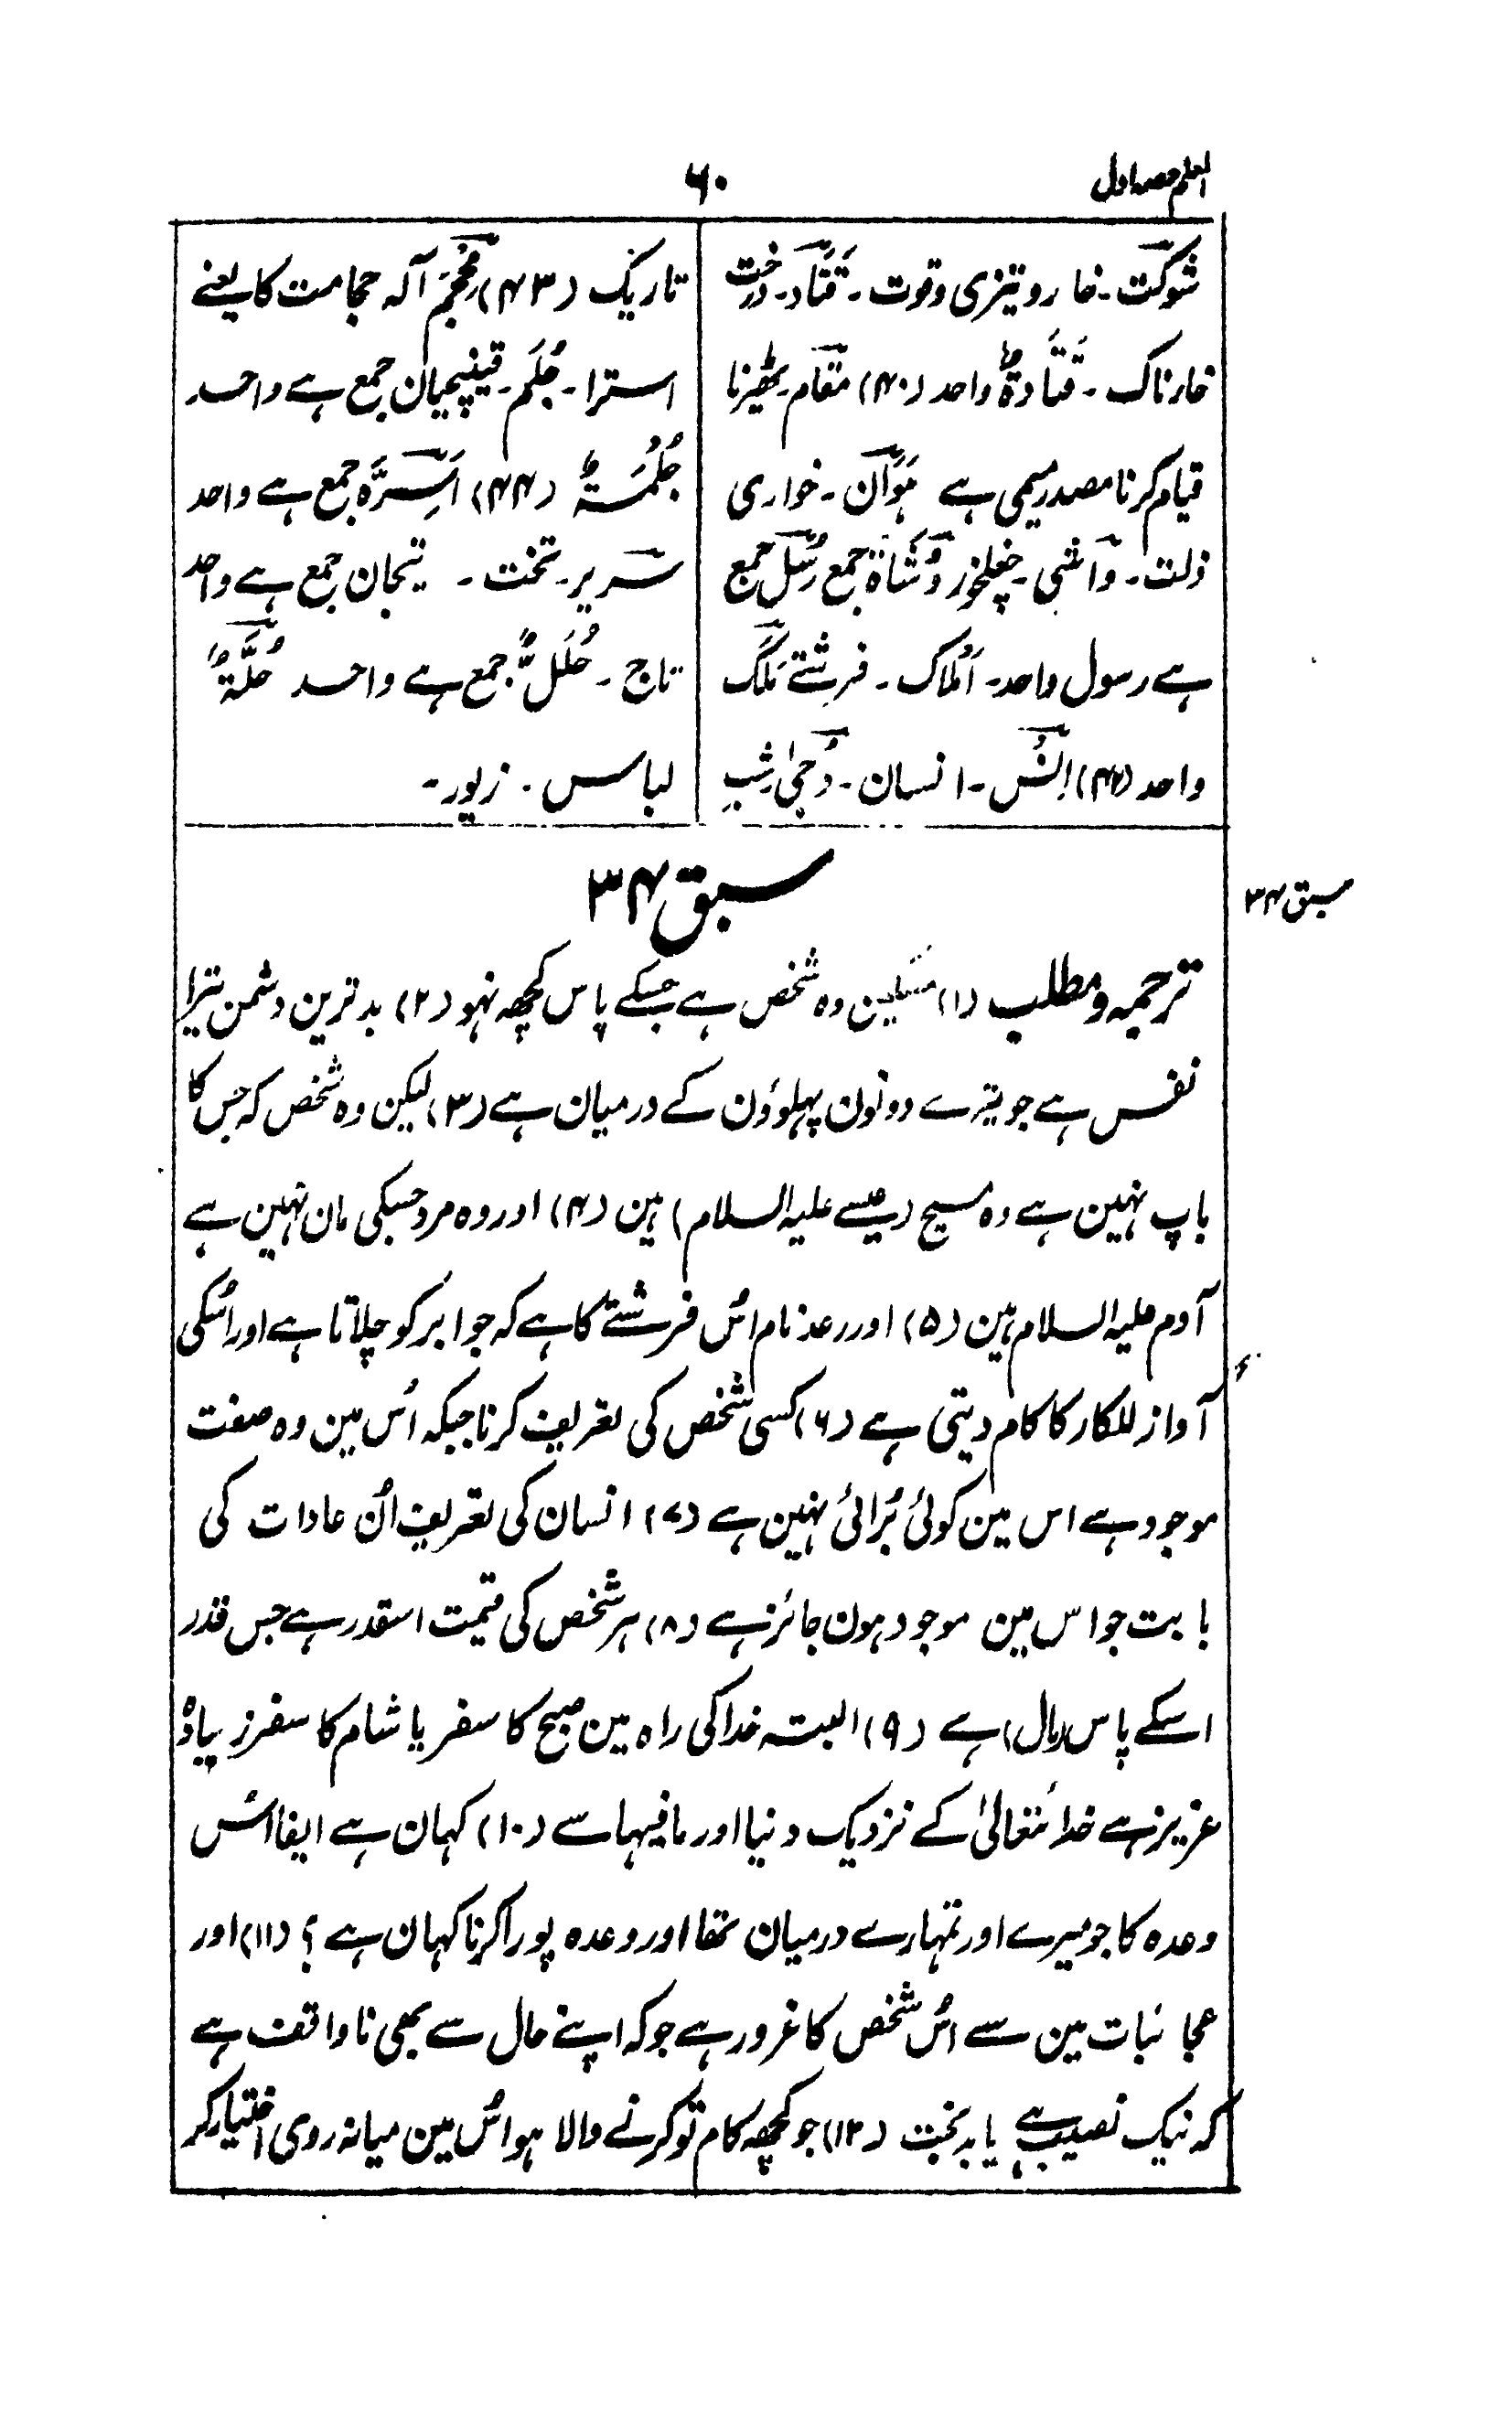 المعلم حصہ اول
۶۰
شوکت۔ خار و تیزی و قوت۔ قَتَاد۔ درخت
خارناک۔ قَتَادَۃٌ واحد (۴۰) مقام۔ ٹھیرنا
قیام کرنا مصدر میمی ہے ہَوَان۔ خواری
ذلت۔ وَاشی۔ چغلخور وُشَاۃ جمع رُسُل جمع
ہے رسول واحد۔ اَمْلاک۔ فرشتے مَلَک
واحد (۴۲) اِنْس۔ انسان۔ دُجیٰ۔ شب
تاریک (۴۳) مِحْجَم آلہ حجامت کا یعنے
استرا۔ جُلَم۔ قینچیان جمع ہے واحد
جُلْمَۃٌ (۴۴) اَسِرَّہ جمع ہے واحد
سریر۔ تخت۔ تیجان جمع ہے واحد
تاج۔ حُلَلٌ جمع ہے واحد حُلَّۃٌ
لباس۔ زیور۔
سبق ۳۴
سبق ۳۴
ترجمہ و مطلب (۱) مسکین وہ شخص ہے جسکے پاس کچھ نہو (۲) بدترین دشمن تیرا
نفس ہے جو تیرے دونون پہلوؤن کے درمیان ہے (۳) لیکن وہ شخص کہ جس کا
باپ نہین ہے وہ مسیح (عیسے علیہ السلام) ہین (۴) اور وہ مرد جسکی مان نہین ہے
آدم علیہ السلام ہین (۵) اور رعد نام اُس فرشتے کا ہے کہ جو ابر کو چلاتا ہے اور اُسکی
آواز للکار کا کام دیتی ہے (۶) کسی شخص کی تعریف کرنا جبکہ اُس مین وہ صفت
موجود ہے اس مین کوئی بُرائی نہین ہے (۷) انسان کی تعریف اُن عادات کی
بابت جو اس مین موجود ہون جائز ہے (۸) ہر شخص کی قیمت اسقدر ہے جس قدر
اسکے پاس (مال) ہے (۹) البتہ خدا کی راہ مین صبح کا سفر یا شام کا سفر زیادہ
عزیز ہے خدائتعالیٰ کے نزدیک دنیا اور مافیہا سے (۱۰) کہان ہے ایفا اُس
وعدہ کا جو میرے اور تمہارے درمیان تھا اور وعدہ پورا کرنا کہان ہے ؟ (۱۱) اور
عجائبات مین سے اُس شخص کا غرور ہے جو کہ اپنے حال سے بھی ناواقف ہے
کہ نیک نصیب ہے یا بدبخت (۱۲) جو کچھ کام تو کرنے والا ہو اُس مین میانہ روی اختیار کر